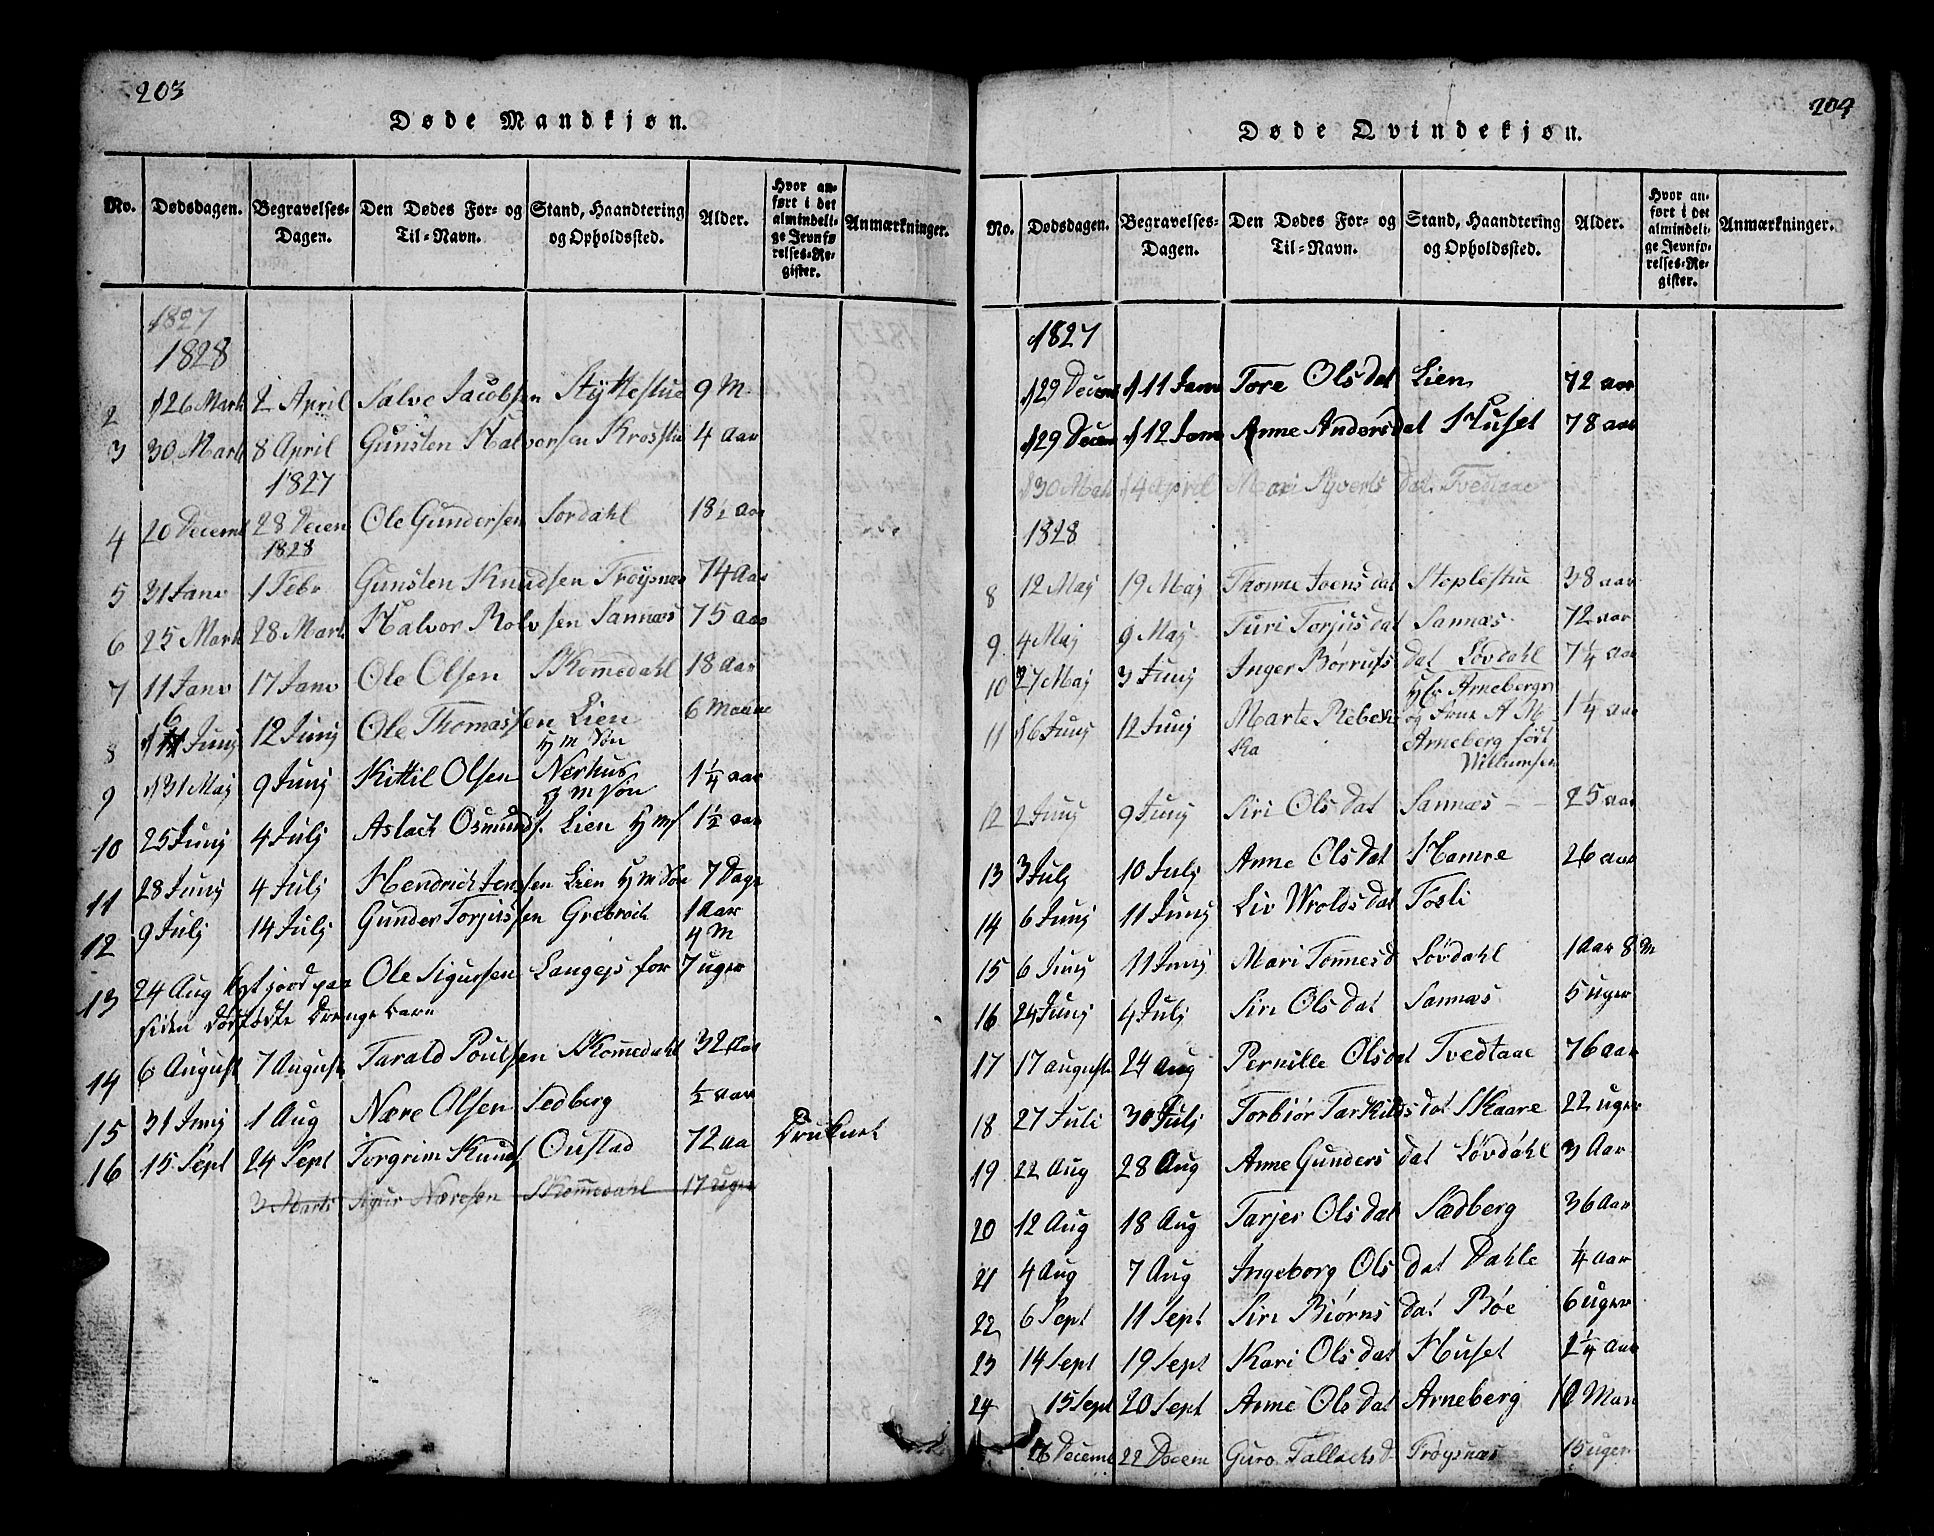 203
Døde Mandkjøn.
No. Dødsdagen. Begravelses-Dagen. Den Dødes For- og Til-Navn. Stand, Haandtering og Opholdssted. Alder. Hvor anført i det almindelige Jevnførelses-Register. Anmærkninger.
1827
1828
2 d 26 Mart 2 April Salve Jacobsen Stykkestue 9 M
3 30 Mart 8 April Gunsten Halvorsen Krosstue 4 Aar
1827
4 20 Decemb 28 Decem Ole Gundersen Sordahl 18½ Aar
1828
5 31 Janv 1 Febr Gunsten Knudsen Frøysnæs 74 Aar
6 25 Mart 28 Mart Halvor Rolvsen Sannæs 75 Aar
7 11 Janv 17 Janv Ole Olsen Skomedahl 18 Aar
8 d 6 Junj 12 Junj Ole Thomassen Lien 6 Maane
H m Søn
9 d 31 Maj 9 Junj Kittil Olsen Nærhus 1¼ aar
g m Søn
10 25 Junj 4 Julj Aslach Osmunds. Lien H m s 1½ aar
11 28 Junj 4 Julj Hendrich Jensen Lien H m Søn 7 Dage
12 9 Julj 14 Julj Gunder Torjussen Grebrok 1 Aar
4 M
13 24 Aug Kast jord paa Ole Sigursen Langejs for 7 uger
siden dødfødte Drenge barn
14 6 August 7 August Tarald Poulsen Skomedahl 32 Aar
15 31 Junj 1 Aug Nære Olsen Sedberg ½ aar
16 15 Sept 24 Sept Torgrim Knuds Oustad 72 aa Druknet
3 Marts Sigur Næresen Skomedahl 17 uger
204
Døde Qvindekjøn.
No. Dødsdagen. Begravelses-Dagen. Den Dødes For- og Til-Navn. Stand, Haandtering og Opholdssted. Alder. Hvor anført i det almindelige Jevnførelses-Register. Anmærkninger.
1827
d 29 Decem d 11 Janv Tore Olsdat Lien 72 aar
d 29 Decem d 12 Janv Anne Andersdat Huset 78 aar
d 30 Mart d 4 April Mari Syverts dat Tvedtaae
1828
8 12 Maj 19 Maj Thonne Joensdat Steplestue 38 aar
9 4 Maj 9 Maj Turi Torjusdat Sannæs 72 aar
10 27 Maj 3 Junj Inger Børrufs dat Løvdahl 7¼ aar
11 d 6 Junj 12 Junj Marte Rebek Hr Arnebergs 1¼ aar
ka og Frue A M
Arneberg født
Willumsen
12 2 Junj 9 Junj Siri Olsdat Sannæs 25 aar
13 3 Julj 10 Julj Anne Olsdat Hamre 26 aar
14 6 Junj 11 Junj Liv Wroldsdat Fosli
15 6 Junj 11 Junj Mari Tønnesd Løvdahl 1 Aar 8 M
16 24 Junj 4 Julj Siri Olsdat Sannæs 5 uger
17 17 august 24 Aug Pernille Olsdat Tvedtaae 76 aar
18 27 Juli 30 Julj Torbiør Tarkilds dat Skaare 22 uger
19 22 Aug 28 Aug Anne Gunders dat Løvdahl 3 Aar
20 12 Aug 18 Aug Tarjer Olsdat Sædberg 36 Aar
21 4 Aug 7 Aug Ingeborg Ols dat Dahle ¼ aar
22 6 Sept 11 Sept Siri Biørns dat Bøe 6 uger
23 14 Sept 19 Sept Kari Olsdat Huset 2¼ aar
24 15 Sept 20 Sept Anne Olsdat Arneberg 10 Maa
26 Decemb 22 Decem Guro Tallachs d Frøysnæs 15 uger